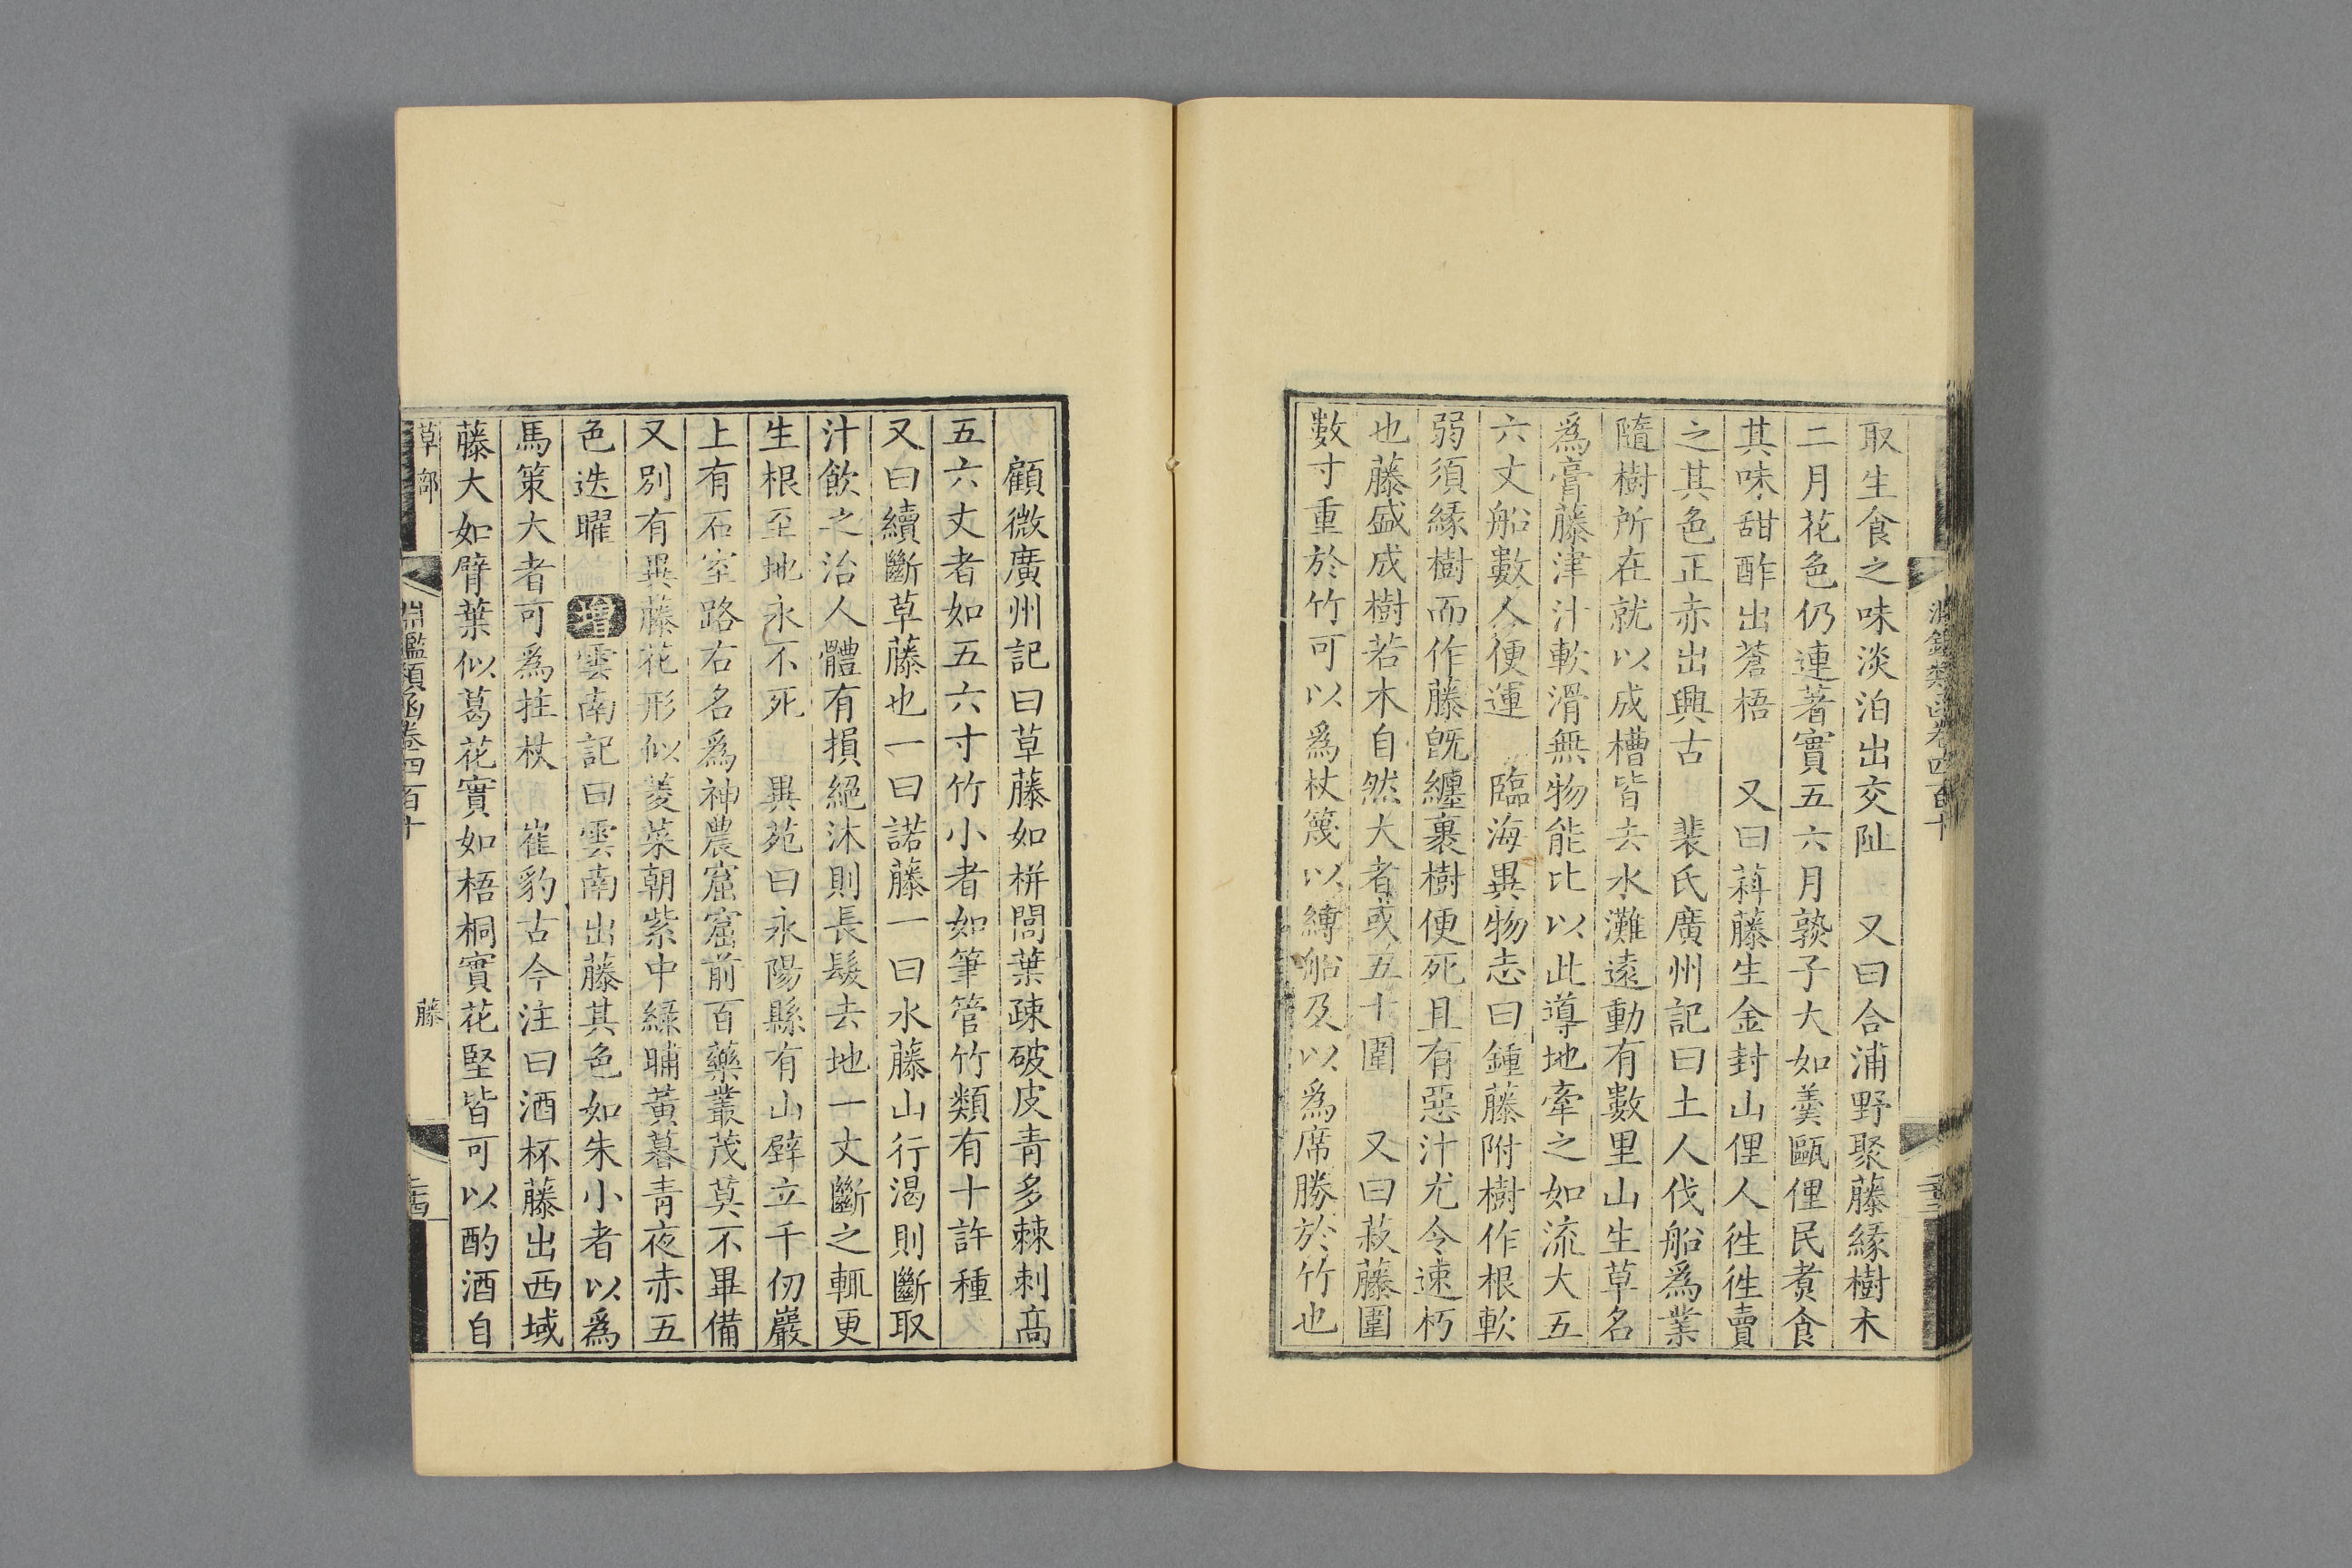 取生食之味淡泊出交阯　又曰合浦野聚藤緣樹木
二月花色仍連著實五六月孰子大如羹甌俚民煑食
其味甜酢出蒼梧　又曰𦺇藤生金封山俚人徃徃賣
之其色正赤出興古　裴氏廣州記曰土人伐船為業
隨樹所在就以成槽皆去水灘遠動有數里山生草名
為膏藤津汁軟滑無物能比以此導地牽之如流大五
六丈船數人便運　臨海異物志曰鍾藤附樹作根軟
弱須緣樹而作藤旣纏裹樹便死且有惡汁尤令速朽
也藤盛成樹若木自然大者或五十圍　又曰菽藤圍
數寸重於竹可以為杖篾以縛船及以為席勝於竹也
顧微廣州記曰草藤如栟櫚葉疎破皮青多棘刺高
五六丈者如五六寸竹小者如筆管竹類有十許種
又曰續斷草藤也一曰諾藤一曰水藤山行渴則斷取
汁飲之治人體有損絕沐則長髮去地一丈斷之輒更
生根至地永不死　異苑曰永陽縣有山壁立千仞巖
上有石室路右名為神農窟窟前百藥叢茂莫不畢備
又別有異藤花形似菱菜朝紫中綠晡黃暮青夜赤五
色迭曜　增雲南記曰雲南出藤其色如朱小者以為
馬策大者可為拄杖　崔豹古今注曰酒杯藤出西域
藤大如臂葉似葛花實如梧桐實花堅皆可以酌酒自
草部　淵鑑類函卷四百十　藤　二十四